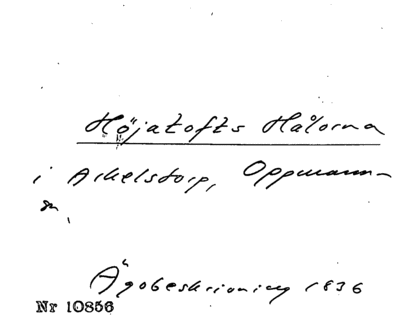 Höjatofts Hålorna
i Arkelstorp, Oppmann-
a.
Ägobeskrivning 1836
Nr 10856